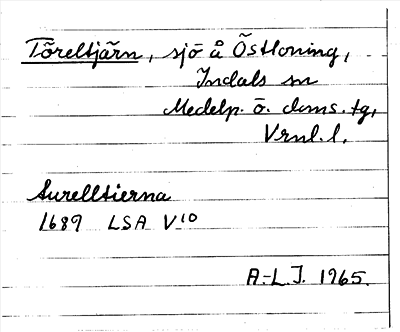 Töreltjärn, sjö å Östloning,
Indals sn
Medelp. ö. doms. tg,
Vrnl. l.
Aurelltierna
1689 LSA V10
A.-L.J. 1965.